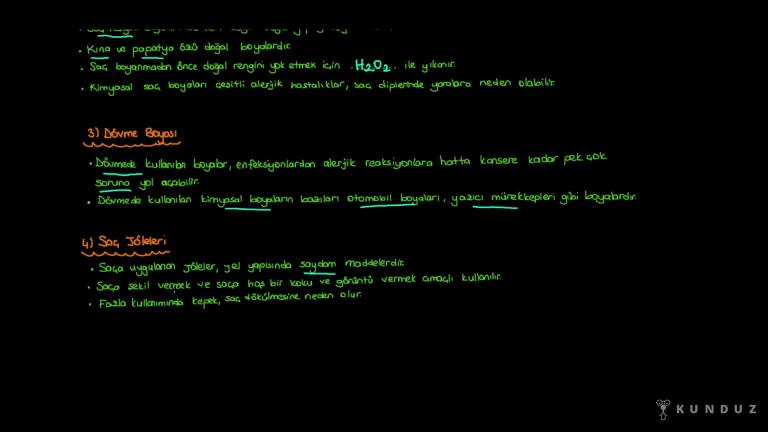 • Kına ve papatya özü doğal boyalardır.
• Saç boyanmadan önce doğal rengini yok etmek için H2O2 ile yıkanır.
• Kimyasal saç boyaları çeşitli alerjik hastalıklar, saç diplerinde yaralara neden olabilir.
3) Dövme Boyası
• Dövmede kullanılan boyalar, enfeksiyonlardan alerjik reaksiyonlara hatta kansere kadar pek çok
soruna yol açabilir.
• Dövmede kullanılan kimyasal boyaların bazıları otomobil boyaları, yazıcı mürekkepleri gibi boyalardır.
4) Saç Jöleleri
• Saça uygulanan jöleler, jel yapısında saydam maddelerdir.
• Saça şekil vermek ve saça hoş bir koku ve görüntü vermek amaçlı kullanılır.
• Fazla kullanımında kepek, saç dökülmesine neden olur.
KUNDUZ